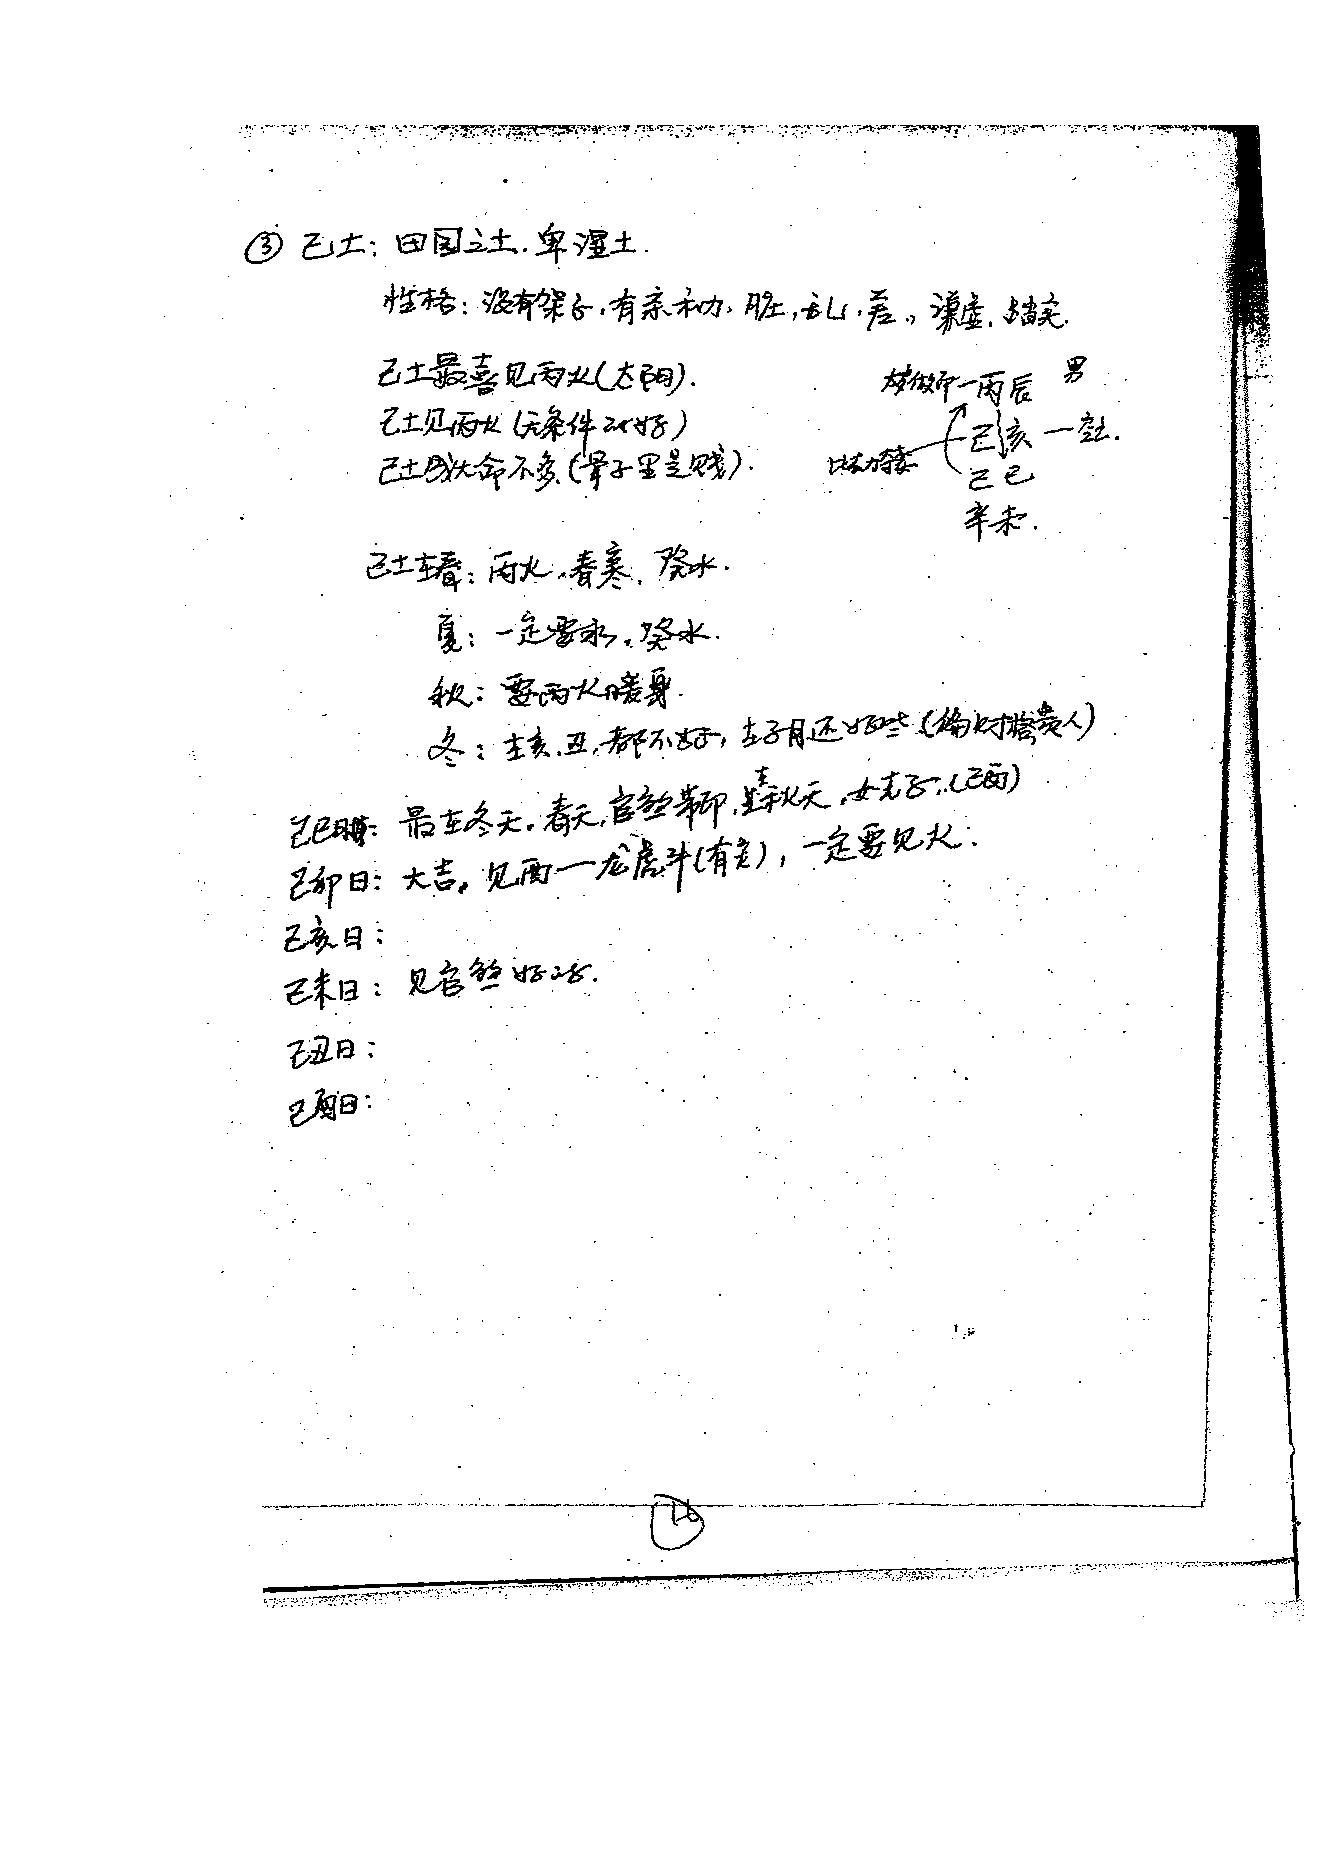 ③ 己土：田园之土．卑湿土．
性格：没有架子，有亲和力，脏，乱，差，谦虚，踏实．
己土最喜见丙火（太阳）．
己土见丙火（无条件的好）
己土成大命不多（骨子里是贱）．
丙辰 男
己亥 一空亡．
己巳
辛未．
己土生春：丙火，春寒，癸水．
夏：一定要水，癸水．
秋：要丙火暖身．
冬：生亥、丑，都不好，生子月还好些（偏财格贵人）
己巳日：最生冬天，春天，官煞带印，秋天，女克子，（己酉）
己卯日：大吉，见酉一龙虎斗（有克），一定要见火．
己亥日：
己未日：见官煞好的．
己丑日：
己酉日：
16